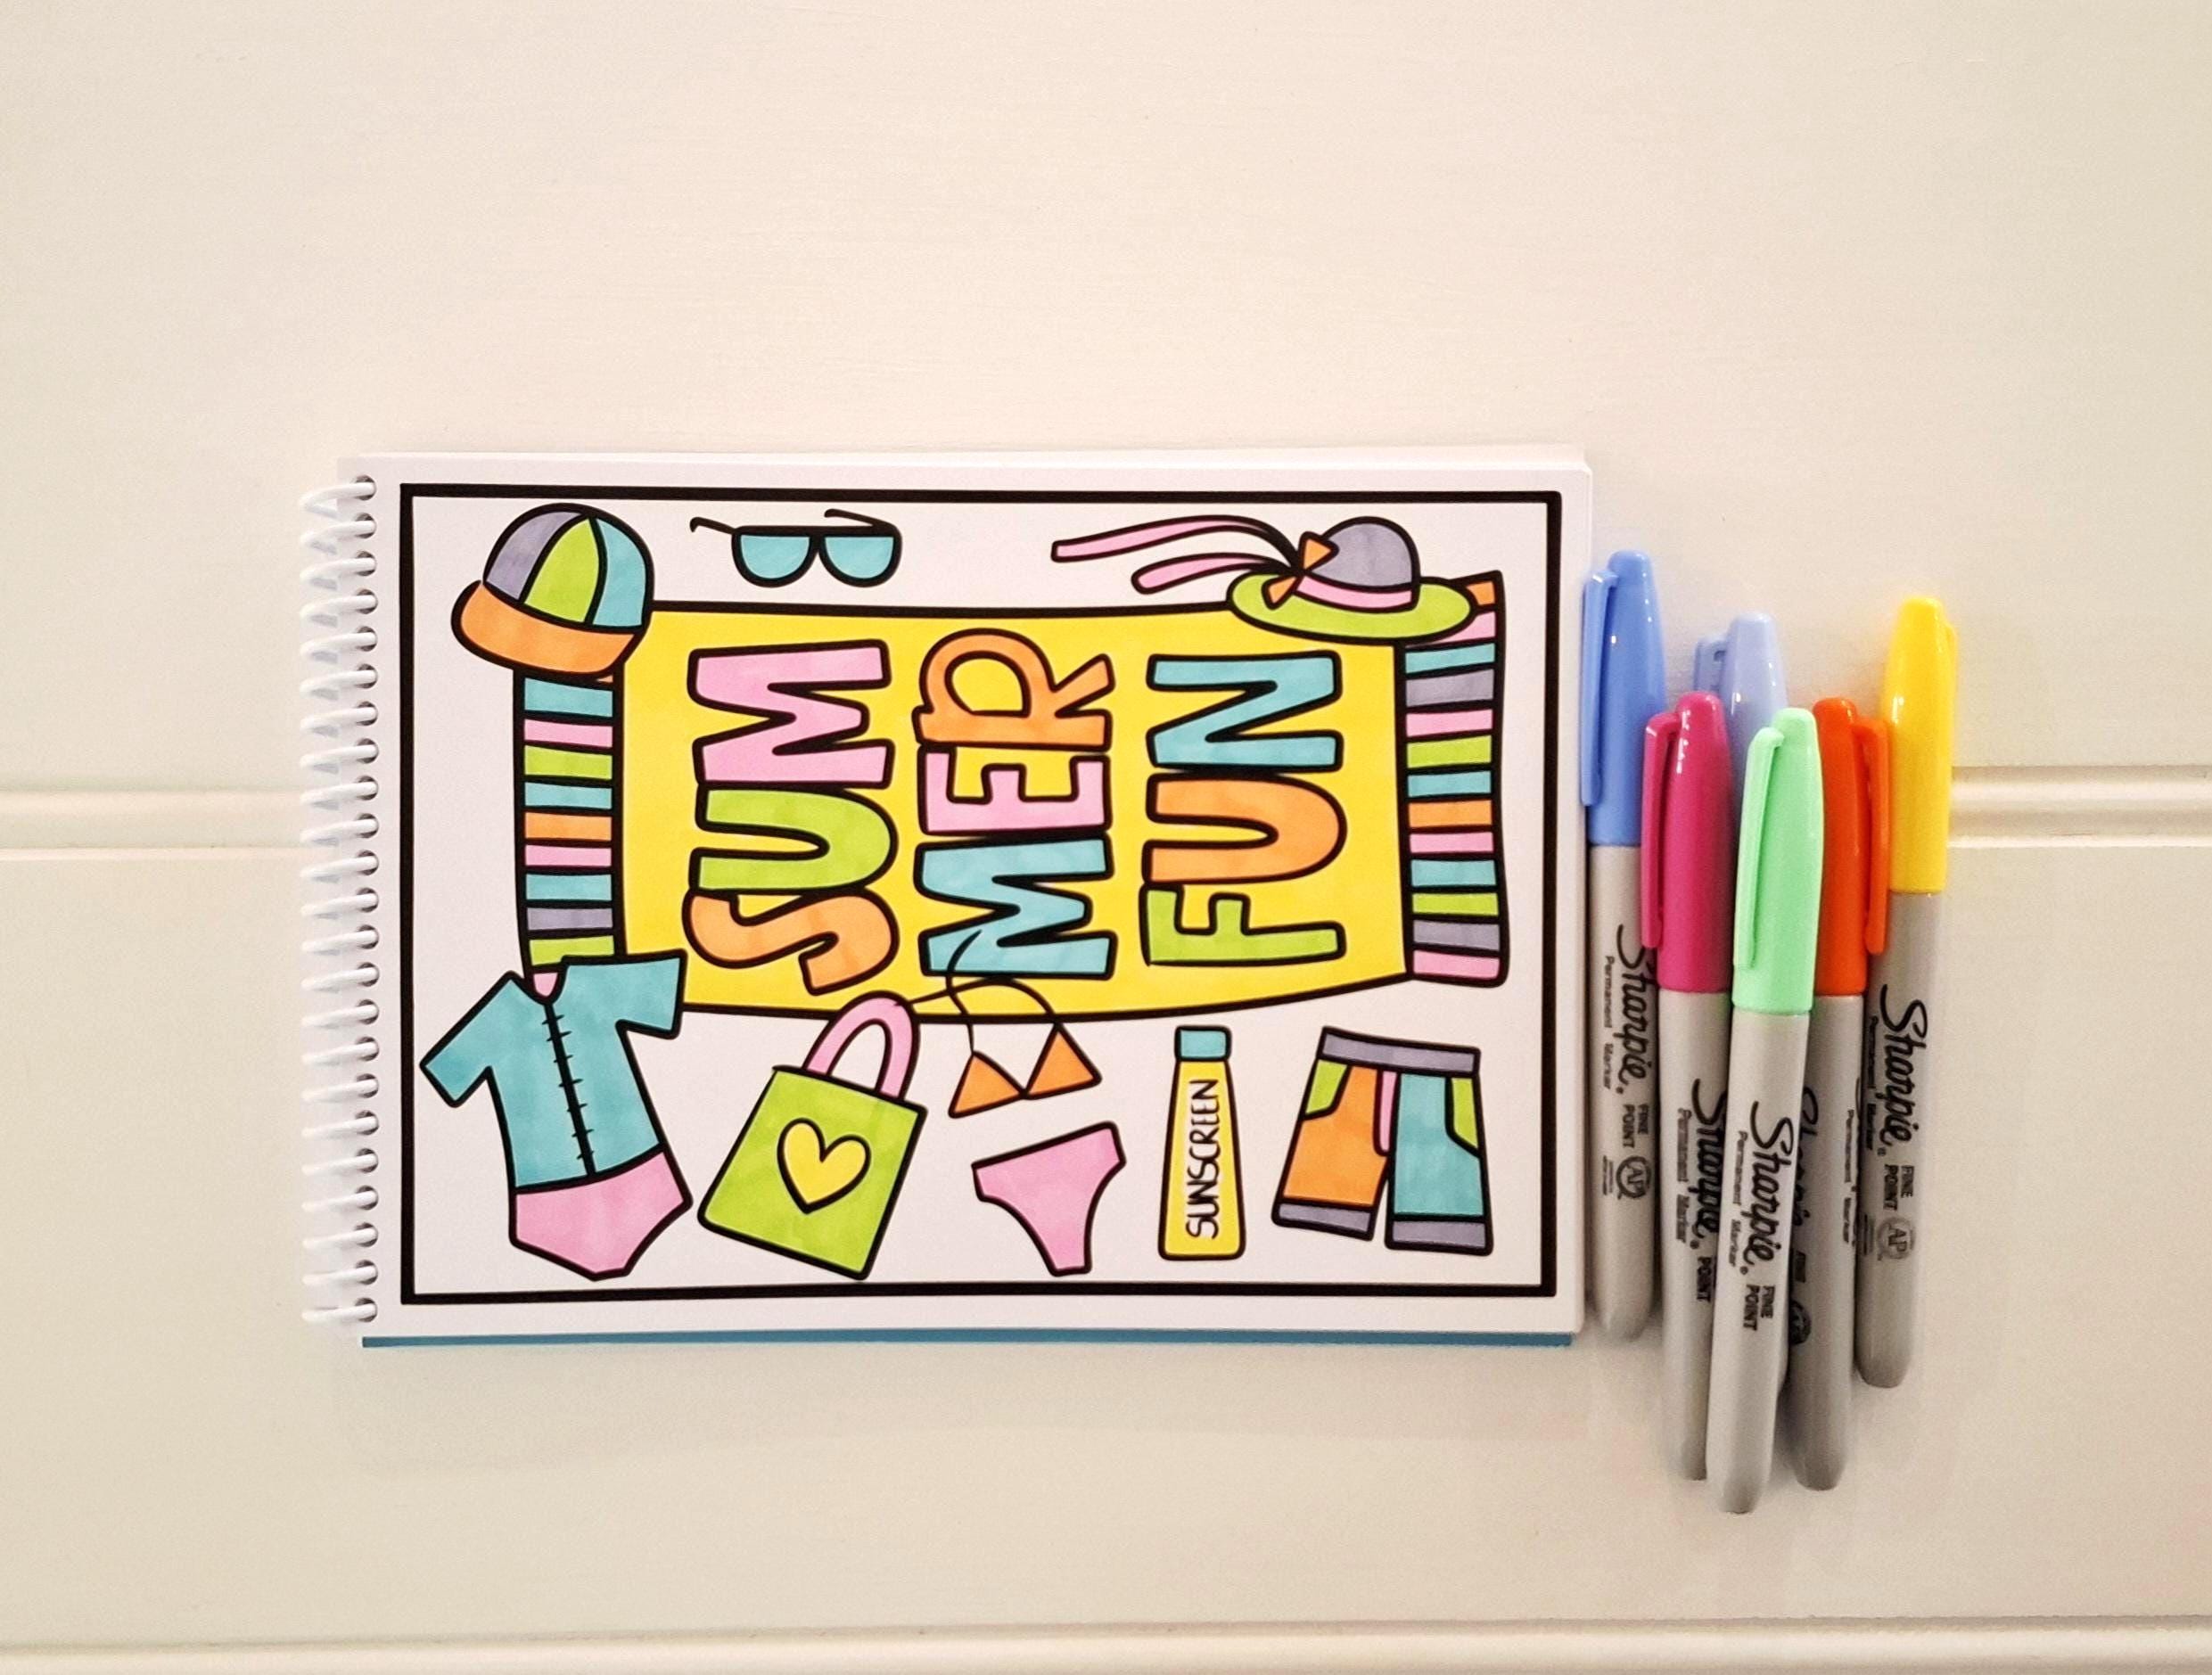 SUM
MER
FUN
SUNSCREEN
Sharpie®
Permanent Marker
FINE
POINT
AP
Sharpie®
Permanent Marker
POINT
Sharpie®
Permanent Marker
FINE
POINT
Permanent Marker
Sharpie®
FINE
POINT
AP